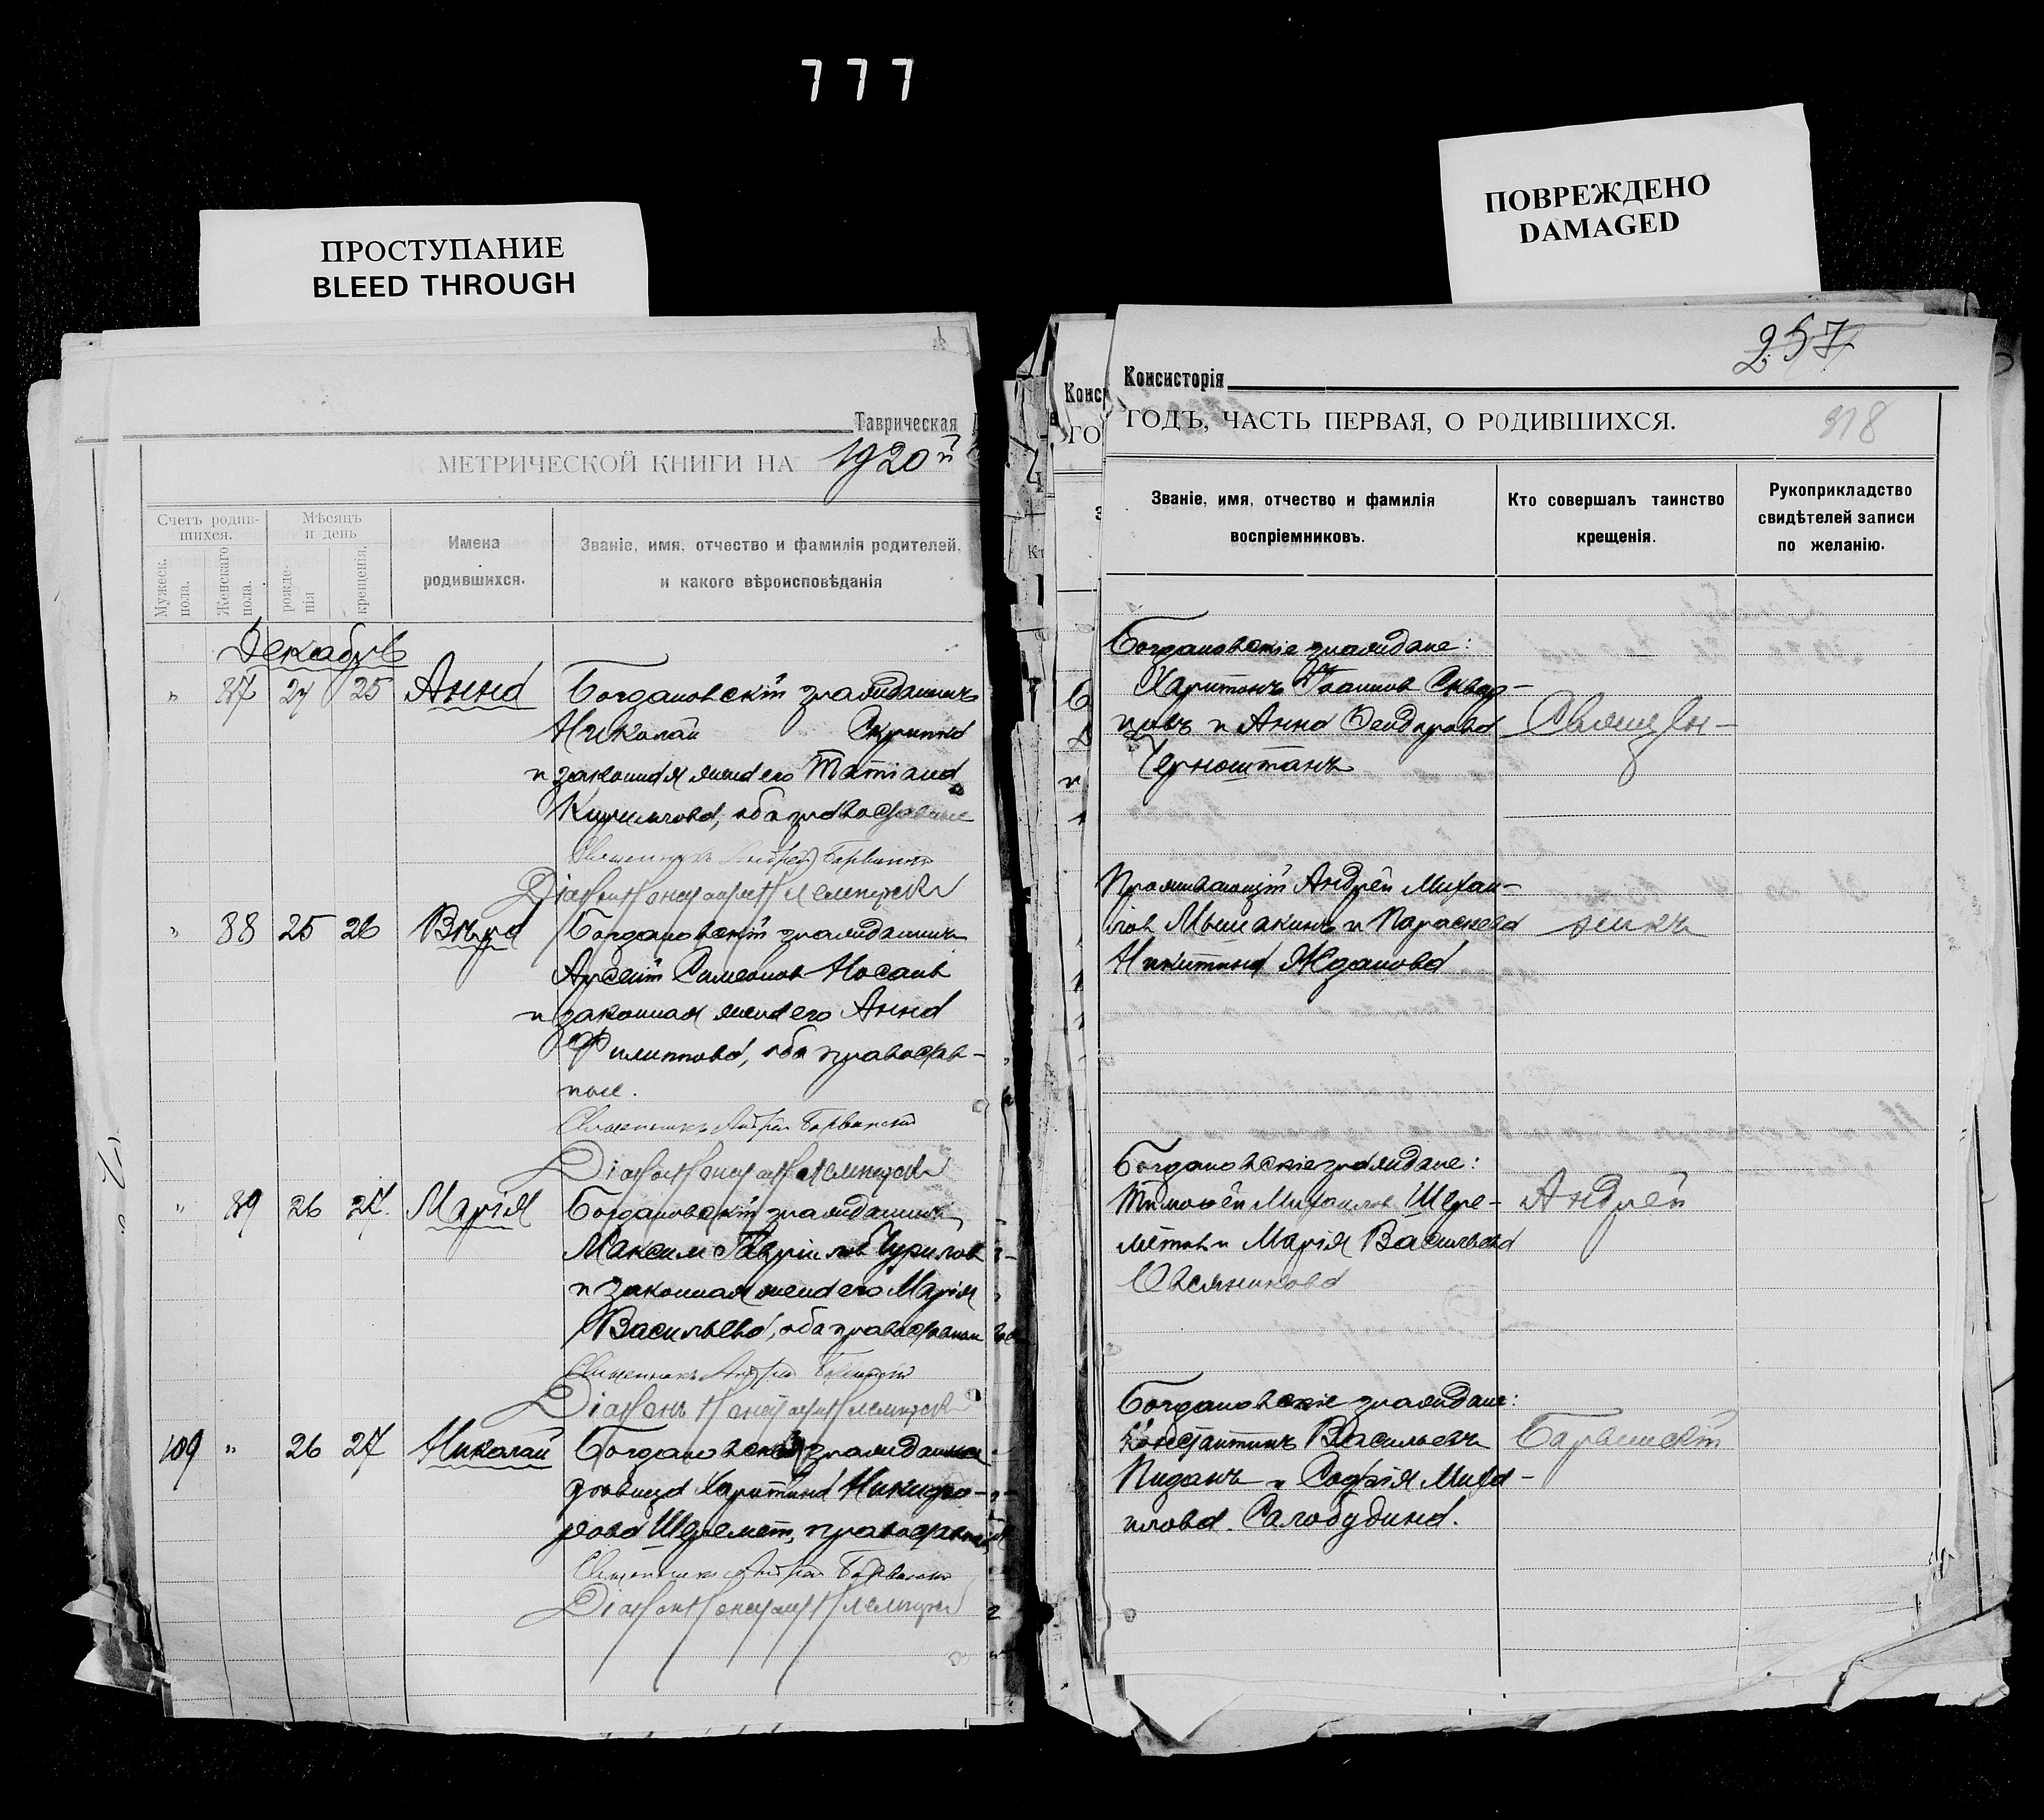 777
ПРОСТУПАНИЕ
BLEED THROUGH
ПОВРЕЖДЕНО
DAMAGED
Таврическая
МЕТРИЧЕСКОЙ КНИГИ НА 1920й
Счетъ родив-
шихся.
Мужеск.
пола.
Женскаго
пола.
Мѣсяцъ
и день
рожде-
нія
крещенія.
Имена
родившихся.
Званіе, имя, отчество и фамилія родителей,
и какого вѣроисповѣданія
Декабрь
" 87 24 25 Анна Богдановскій гражданинъ
Николай Скрипка
и законная жена его Татіана
Кирилова, оба православные
Священникъ Андрей Барвинскій
Діаконъ
" 88 25 26 Вѣра Богдановскій гражданинъ
Арсеній Симеонов Носань
и законная жена его Анна
Филиппова, оба православ-
ные.
Священникъ Андрей Барвинскій
Діаконъ
" 89 26 27. Марія Богдановскій гражданинъ
Максим Гавріилов Чурилов
и законная жена его Марія
Васильева, оба православные
Священникъ Андрей Барвинскій
Діаконъ
109 " 26 27 Николай Богдановская гражданка
вдовица Харитина Никифо-
рова Шеремет, православная
Священникъ Андрей Барвинскій
Діаконъ
257
Консисторія
ГОДЪ, ЧАСТЬ ПЕРВАЯ, О РОДИВШИХСЯ.
318
Званіе, имя, отчество и фамилія
воспріемниковъ.
Кто совершалъ таинство
крещенія.
Рукоприкладство
свидѣтелей записи
по желанію.
Богдановскіе граждане:
Харитонъ Іоаннов Сквор-
цовъ и Анна Феодорова
Черноштанъ
Проживающій Андрей Михаи-
лов Мышакинъ и Параскева
Никитина Жданова
Богдановскіе граждане:
Тимофей Михаилов Шере-
метов и Марія Васильева
Овсянникова
Богдановскіе граждане:
Константинъ Васильевъ
Пиданъ и Софія Миха-
илова Салобудина.
Священ-
никъ
Андрей
Барвинскій